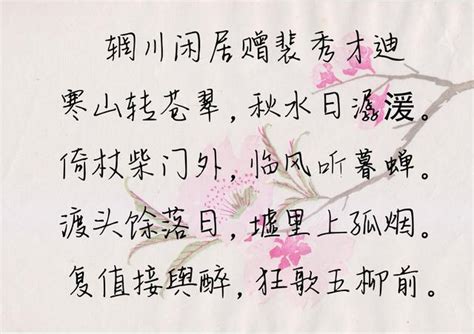 辋川闲居赠裴秀才迪
寒山转苍翠，秋水日潺湲。
倚杖柴门外，临风听暮蝉。
渡头馀落日，墟里上孤烟。
复值接舆醉，狂歌五柳前。